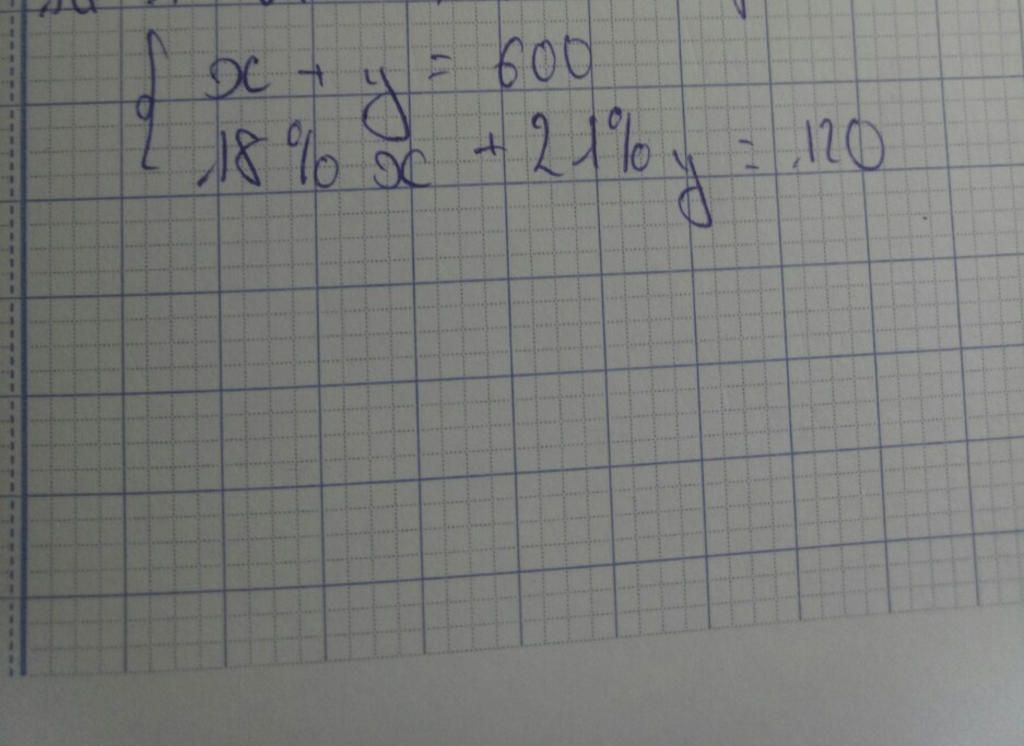 x + y = 600
18% x + 21% y = 120